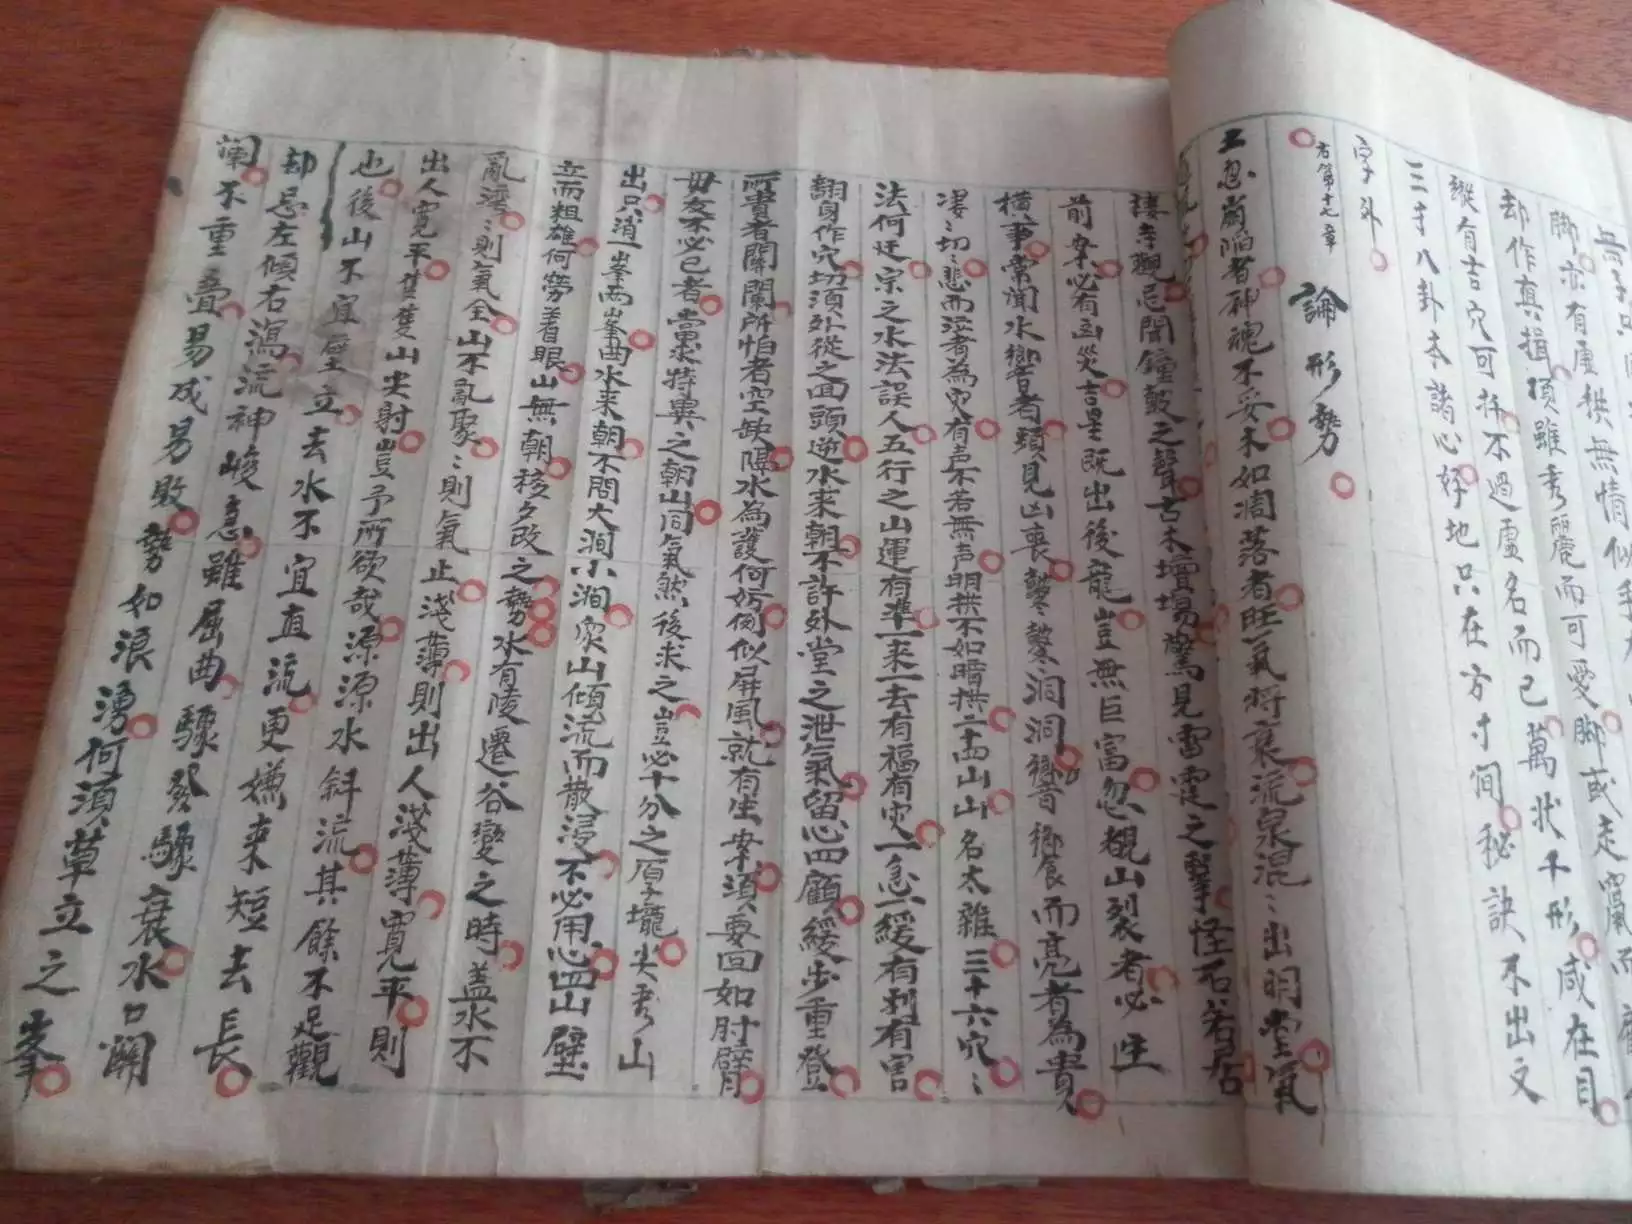 脚亦有虛拱無情似手
却作真揖頂雖秀麗而可愛脚或走竄而
縱有吉穴可扦不過虛名而已萬狀千形咸在目
三寸八卦本諸心好地只在方寸間秘訣不出文
字外
右第十七章
論形勢
土忽崩陷者神魂不妥木如凋落者旺氣將衰流泉混〻出明堂氣
樓寺觀忌聞鐘鼓之聲古木壇場驚見雷霆之擊怪石若居
前案必有凶災吉星既出後龍豈無巨富忽覩山裂者必生
橫事常聞水響者頻見凶喪鼕鼕洞洞響音而亮者為貴
凄〻切〻悲而泣者為灾有声不若無声明拱不如暗拱二十四山山名太雜三十六穴〻
法何迂宗之水法誤人五行之山運有準一来一去有福有灾一急一緩有利有害
翻身作穴切須外從之回頭逆水来朝不許外堂之泄氣留心四顧緩步重登
所貴者關闌所怕者空缺隔水為護何妨倒似屏風就有生案須要回如肘臂
毋友不必己者當求特異之朝山同氣然後求之豈必十分之厚壠尖秀山
出只消一峯兩峯曲水来朝不問大澗小澗衆山傾流而散漫不必用心四山壁
立而粗雄何勞着眼山無朝移夕改之勢水有陵遷谷變之時蓋水不
亂灣〻則氣全山不亂聚〻則氣止淺薄則出人淺薄寬平則
出人寬平隻隻山尖射豈予所欲哉源源水斜流其餘不足觀
也後山不宜壁立去水不宜直流更嫌来短去長
却忌左傾右瀉流神峻急雖屈曲驟發驟衰水口關
闌不重疊易成易敗勢如浪湧何須草立之峯